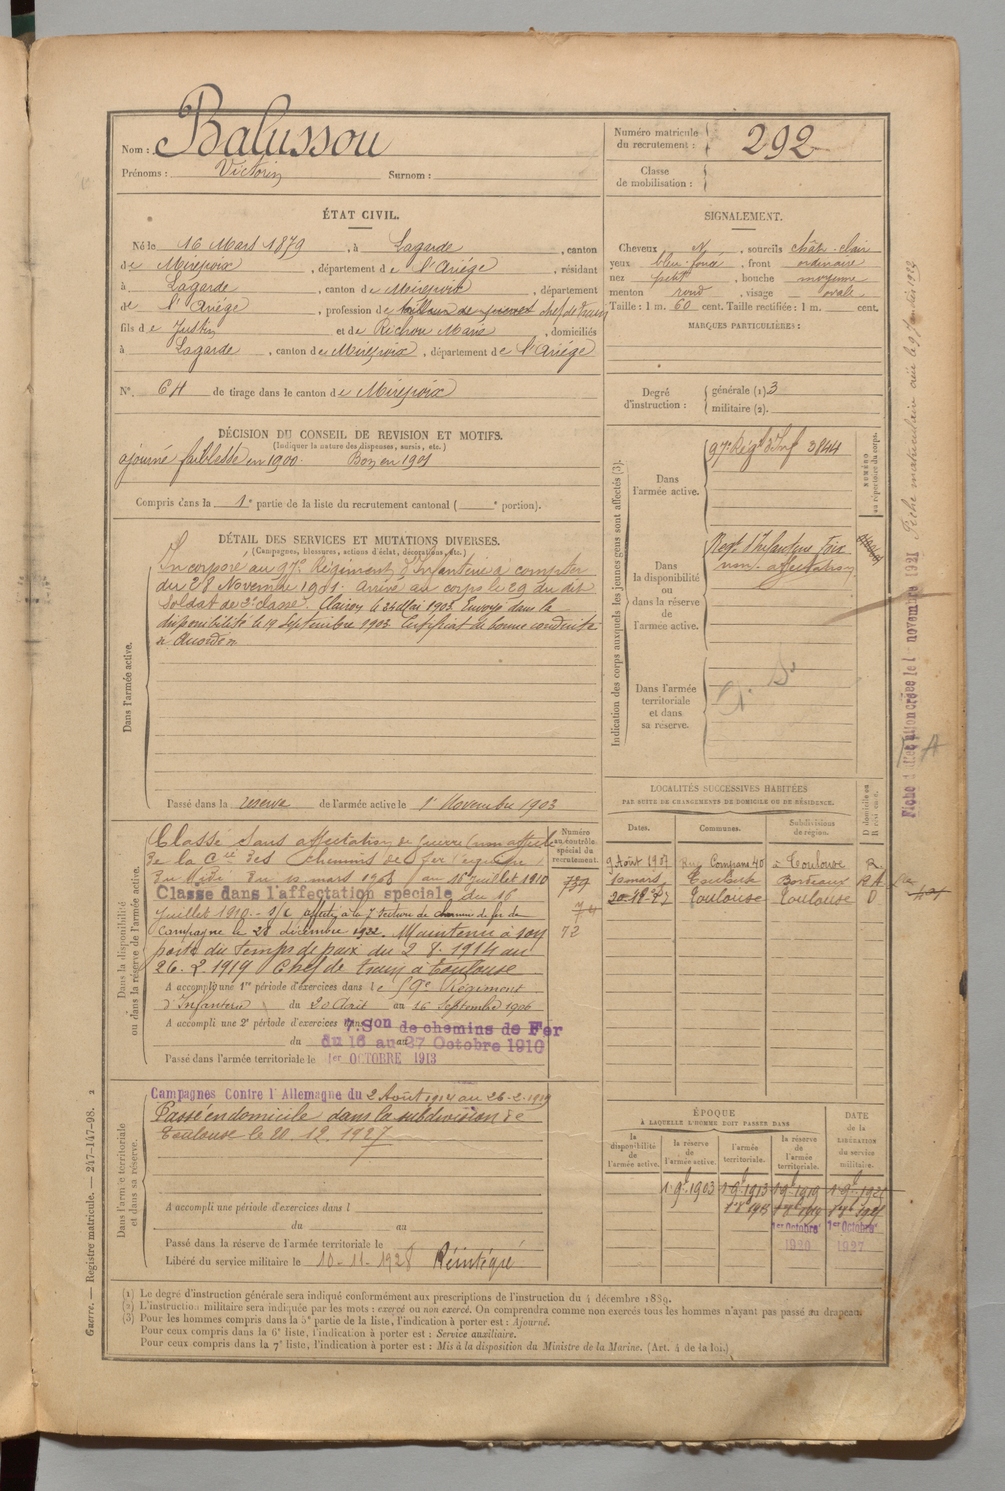 Nom : Balussou
Prénoms : Victorin Surnom :
Numéro matricule du recrutement : 292
Classe de mobilisation :
ÉTAT CIVIL.
Né le 16 Mars 1879, à Lagarde, canton
de Mirepoix, département de l'Ariége, résidant
à Lagarde, canton de Mirepoix, département
de l'Ariége, profession de chef de train
fils de Justin et de Richou Marie, domiciliés
à Lagarde, canton de Mirepoix, département de l'Ariége
N°. 64 de tirage dans le canton de Mirepoix
SIGNALEMENT.
Cheveux N, sourcils chât-clair
yeux bleu-foncé, front ordinaire
nez petit, bouche moyenne
menton rond, visage ovale.
Taille : 1 m. 60 cent. Taille rectifiée : 1 m. cent.
MARQUES PARTICULIÈRES :
Degré d'instruction : générale (1) 3
militaire (2).
DÉCISION DU CONSEIL DE REVISION ET MOTIFS.
(Indiquer la nature des dispenses, sursis, etc.)
ajourné faiblesse en 1900. Bon en 1901
Compris dans la 1e partie de la liste du recrutement cantonal ( e portion).
DÉTAIL DES SERVICES ET MUTATIONS DIVERSES.
(Campagnes, blessures, actions d'éclat, décorations, etc.)
Dans l'armée active.
Incorporé au 97e Régiment d'Infanterie à compter
du 28 Novembre 1901. Arrivé au corps le 29 du dit
Soldat de 2e classe. Clairon le 1903. Envoyé dans la
disponibilité le 19 Septembre 1903. Certificat de bonne conduite
Passé dans la réserve de l'armée active le 1 Novembre 1903
Indication des corps auxquels les jeunes gens sont affectés (3).
NUMÉRO au répertoire du corps.
Dans l'armée active. 97e Régt d'Inf 3844
Dans la disponibilité ou dans la réserve de l'armée active. Regt d'Infanterie Foix
non-affectation
Dans l'armée territoriale et dans sa réserve.
Fiche matriculaire
Fiche novembre 1921
A
Dans la disponibilité ou dans la réserve de l'armée active.
Numéro au contrôle spécial du recrutement.
Classé sans affectation de guerre (non affecté)
de la Cie des Chemins de fer
du Midi Du 10 mars 1908 au 15 Juillet 1910
Classé dans l'affectation spéciale du 16
Juillet 1910 - affecté à la 7 section de chemin de fer de
Campagne le 28 décembre 1922. Maintenu à son
poste du temps de paix du 2 8. 1914 au
26. 2. 1919 Chef de train à Toulouse
72
A accompli une 1re période d'exercices dans le 59e Régiment
d'Infanterie du 20 Août au 16 Septembre 1906
A accompli une 2e période d'exercices dans 7e Son de chemins de Fer
du 16 au 27 Octobre 1910
Passé dans l'armée territoriale le 1er OCTOBRE 1913
LOCALITÉS SUCCESSIVES HABITÉES
PAR SUITE DE CHANGEMENTS DE DOMICILE OU DE RÉSIDENCE.
Dates. Communes. Subdivisions de région. D domicile ou R résidence.
9 Août 1907 Rue Compans 40 à Toulouse R
10 mars Toulouse Bordeaux
20-12-27 Toulouse Toulouse D
Dans l'armée territoriale et dans sa réserve.
Campagnes Contre l'Allemagne du 2 Août 1914 au 26-2-1919
Passé en domicile dans la subdivision de
Toulouse le 20. 12. 1927
A accompli une période d'exercices dans l
du au
Passé dans la réserve de l'armée territoriale le
Libéré du service militaire le 10-11-1928 Réintégré
ÉPOQUE
À LAQUELLE L'HOMME DOIT PASSER DANS
la disponibilité de l'armée active.
la réserve de l'armée active.
l'armée territoriale.
la réserve de l'armée territoriale.
DATE de la LIBÉRATION du service militaire.
1 9b 1903 1 9b 1913 1 9b 1919
1er Octobre 1920 1er Octobre 1927
(1) Le degré d'instruction générale sera indiqué conformément aux prescriptions de l'instruction du 4 décembre 1889.
(2) L'instruction militaire sera indiquée par les mots : exercé ou non exercé. On comprendra comme non exercés tous les hommes n'ayant pas passé au drapeau.
(3) Pour les hommes compris dans la 5e partie de la liste, l'indication à porter est : Ajourné.
Pour ceux compris dans la 6e liste, l'indication à porter est : Service auxiliaire.
Pour ceux compris dans la 7e liste, l'indication à porter est : Mis à la disposition du Ministre de la Marine. (Art. 4 de la loi.)
Guerre. — Registre matricule. — 247-147-98. 2